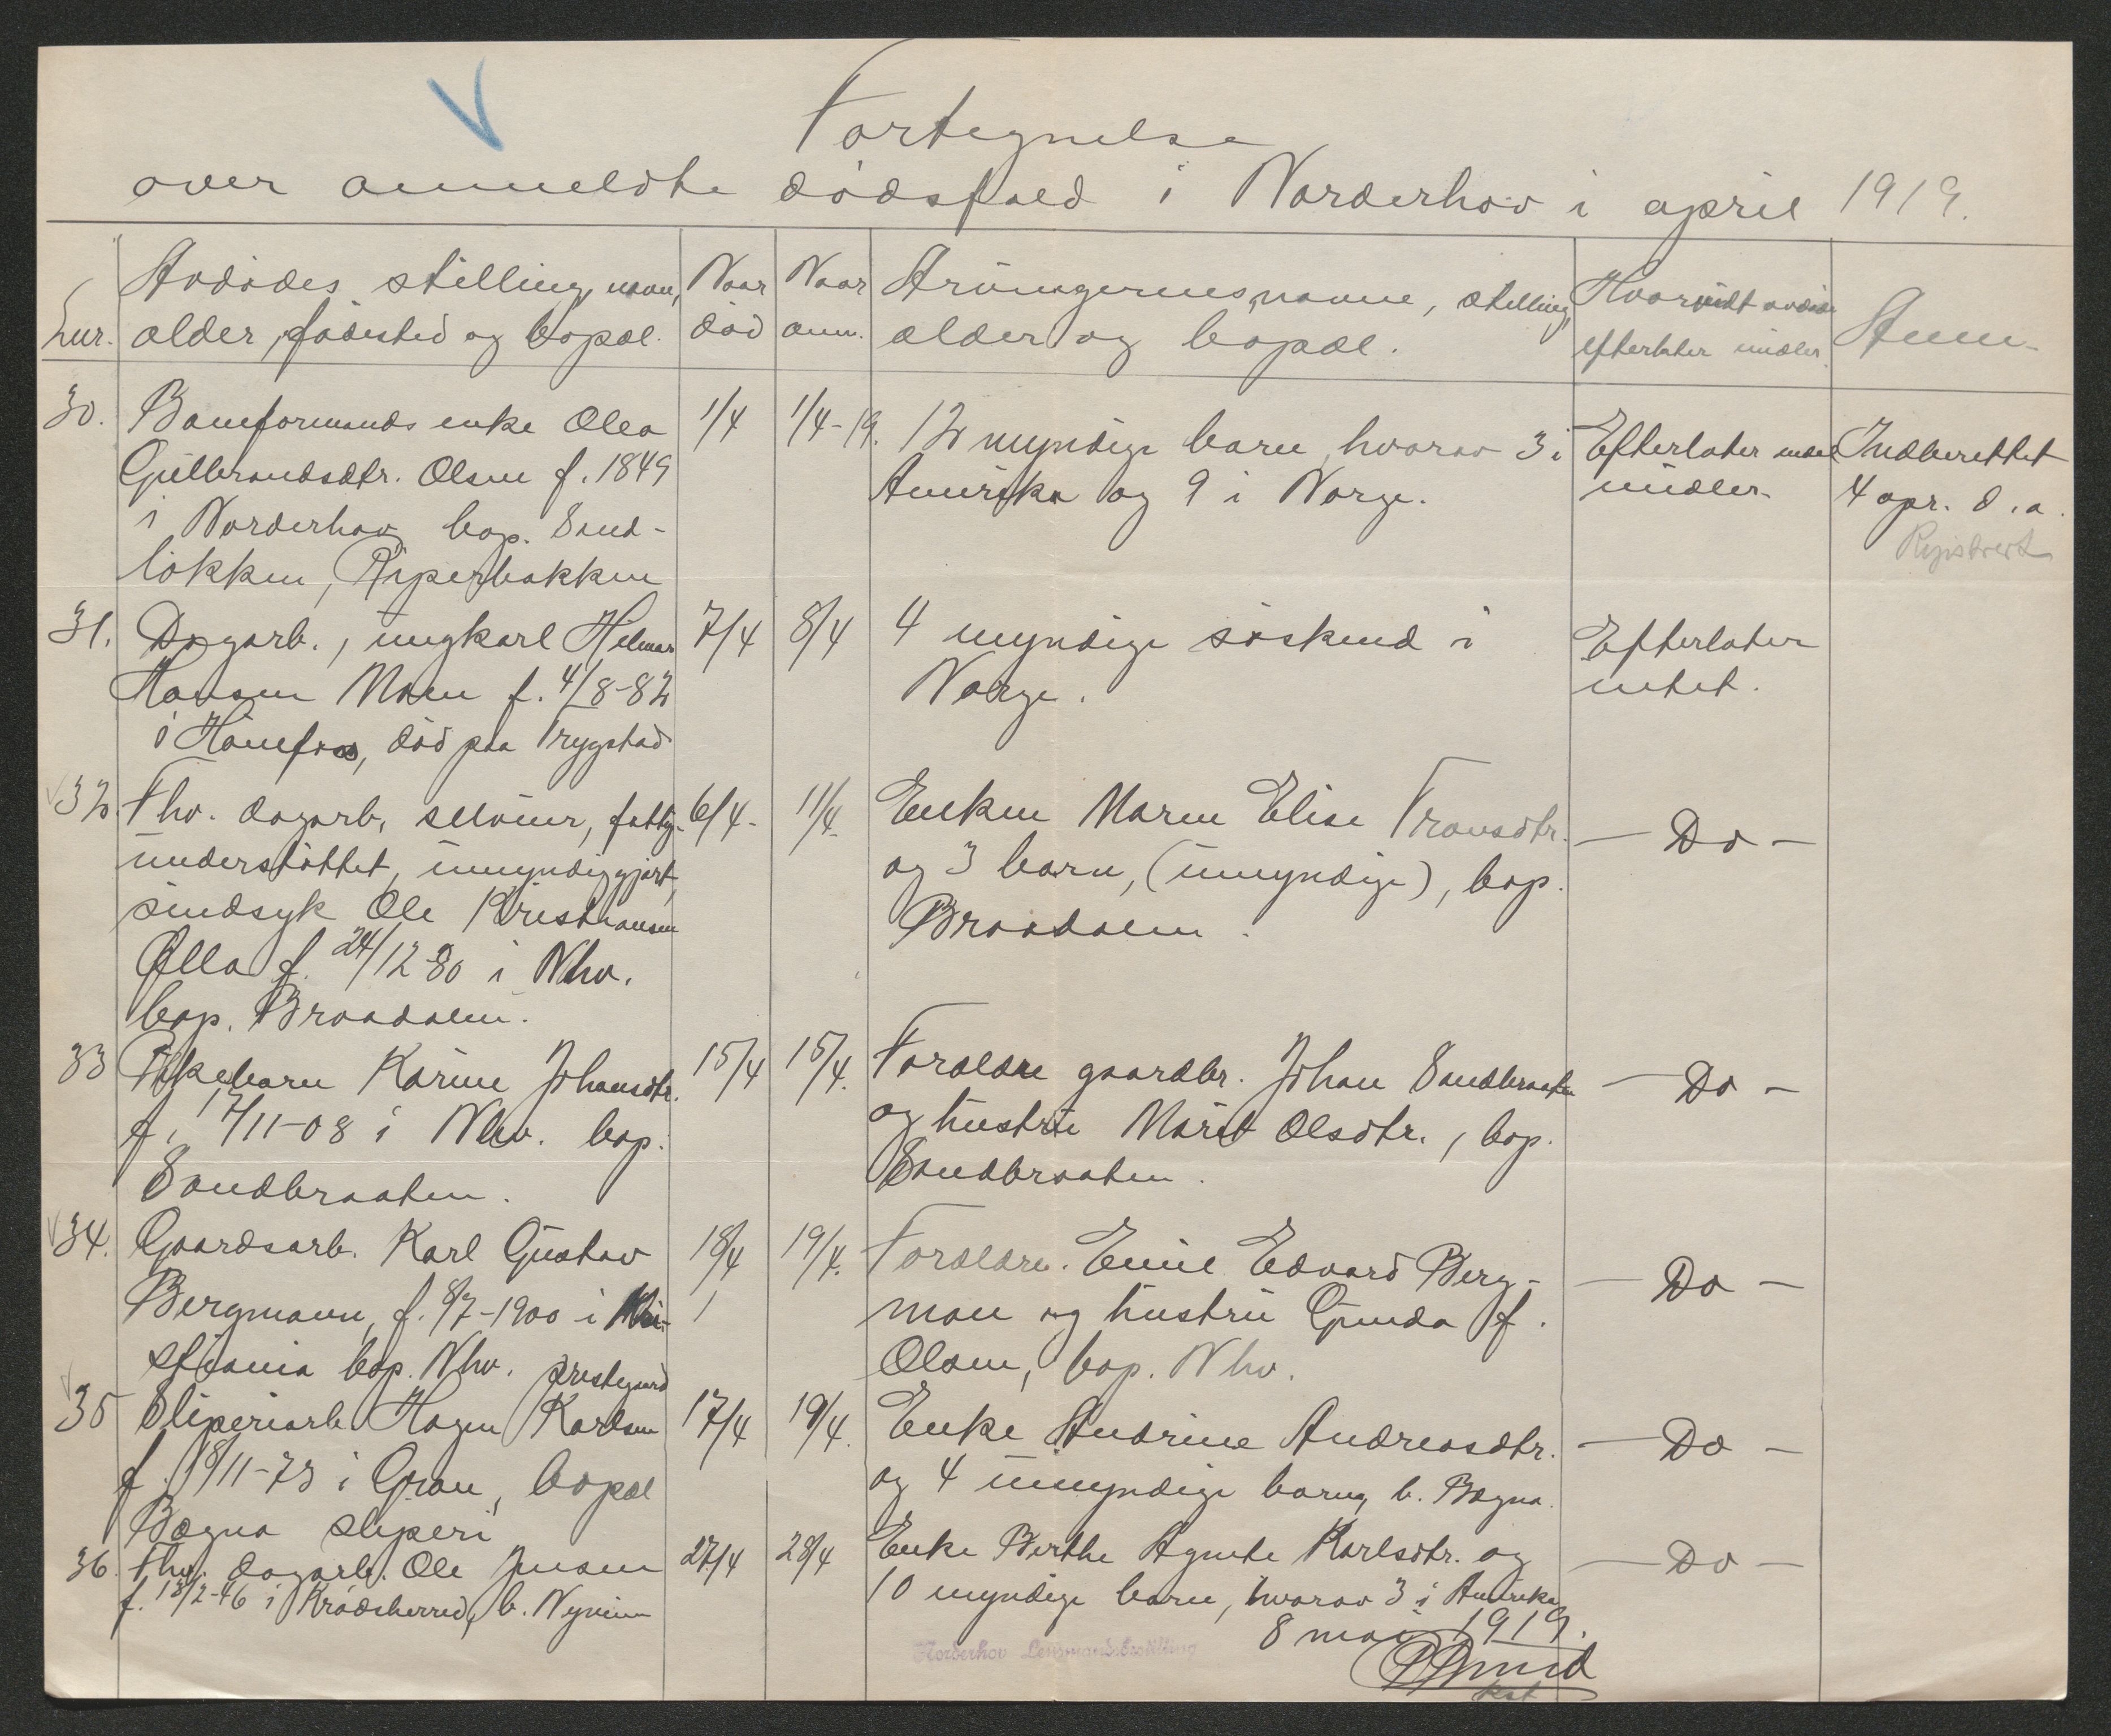 Fortegnelse
over anmeldte dødsfald i Norderhov i april 1919.
Lnr.
Avdødes stilling, navn,
alder, fødested og bopæl.
Naar
død
Naar
anm.
Arvingernes navne, stilling,
alder og bopæl.
Hvorvidt avdøde
efterlater midler
Anm.
30.
Baneformands enke Olea
Gulbrandsdtr. Olsen f. 1849
i Norderhov bop. Sand-
løkken, Ringerbakken
1/4
1/4-19.
12 myndige barn, hvorav 3 i
Amerika og 9 i Norge.
Efterlater
midler
Indberettet
4 apr. d. a.
Registrert
31.
Dagarb., ungkarl Hilmar
Hansen Moen f. 4/8-82
i Hønefos, død paa Trygstad
7/4
8/4
4 myndige søskend i
Norge.
Efterlater
intet.
32.
Fhv. dagarb, selveier, fattig-
understøttet, umyndiggjort,
sindsyk Ole Kristiansen
Ølla f. 24/12-80 i Nhv.
bop. Braadalen.
6/4-
11/4-
Enken Maren Elise Fransdtr.
og 3 barn, (umyndige), bop.
Braadalen.
- Do -
33
Pikebarn Karine Johansdtr.
f. 17/11-08 i Nhv. bop.
Sandbraaten.
15/4
15/4.
Forældre gaardbr. Johan Sandbraaten
og hustru Marit Olsdtr., bop.
Sandbraaten.
- Do -
34.
Gaardsarb. Karl Gustav
Bergmann, f. 8/7-1900 i Kri-
stiania bop. Nhv. prestegaard
18/4
19/4.
Forældre. Emil Edvard Berg-
man og hustru Gunda f.
Olsen, bop. Nhv.
- Do -
35
Sliperiarb. Hagen Karlsen
f. 18/11-73 i Gran, bopæl
Bægna sliperi
17/4
19/4.
Enke Andrine Andreasdtr.
og 4 umyndige barn, b. Bægna.
- Do -
36.
Fhv. dagarb. Ole Jensen
f. 18/2-46 i Krødsherred, b. Nymoen
27/4
28/4
Enke Berthe Agnete Karlsdtr. og
10 myndige barn, hvorav 3 i Amerika
- Do -
8 mai 1919.
Norderhov Lensmandsbestilling